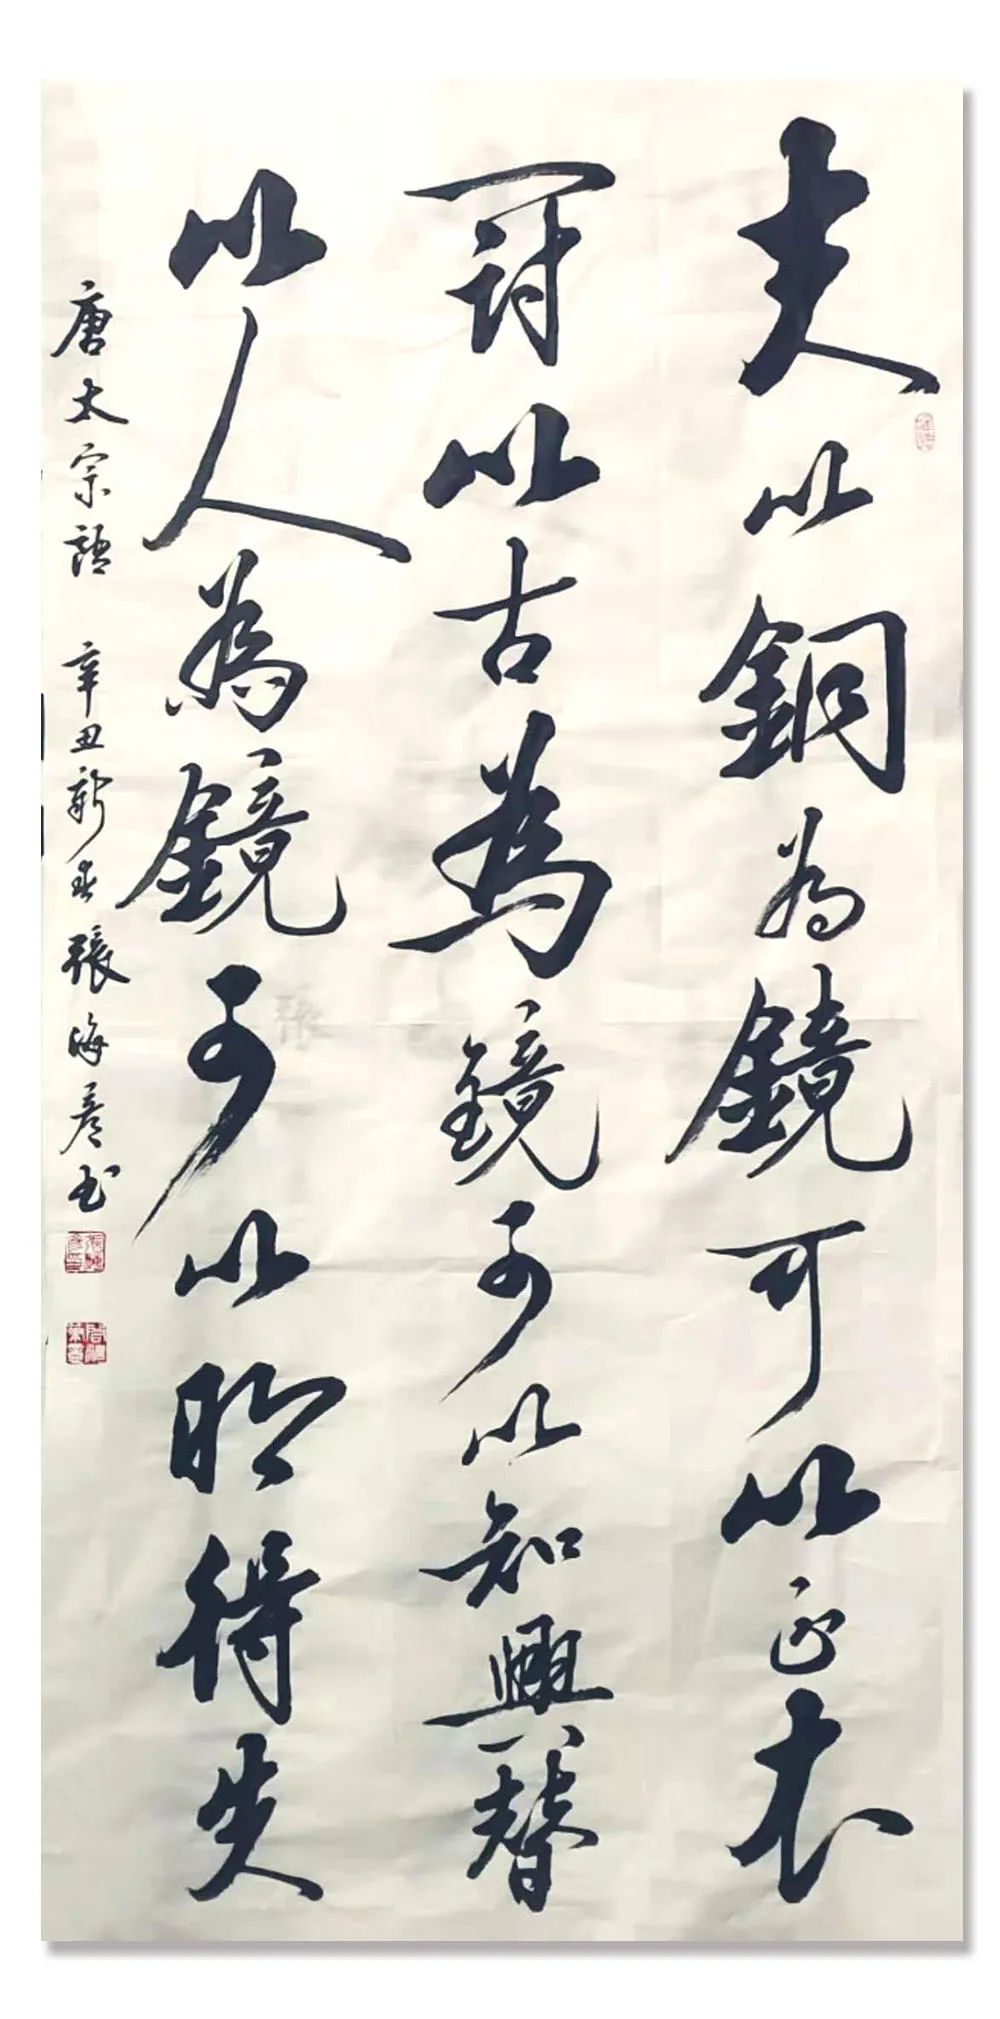 夫以銅為鏡可以正衣
冠以古為鏡可以知興替
以人為鏡可以明得失
唐太宗語 辛丑新春張海彥书